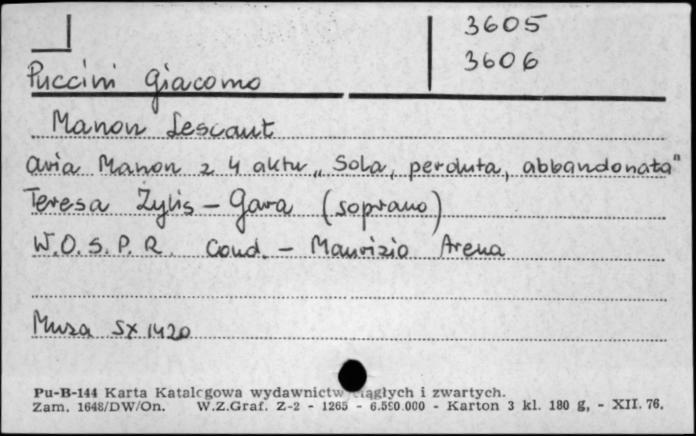 3605
3606
Puccini Giacomo
Manon Lescaut
aria Manon z 4 aktu „Sola, perduta, abbandonata"
Teresa Żylis - Gara (soprano)
W.O.S.P.R. Cond. - Maurizio Arena
Muza SX 1420
Pu-B-144 Karta Katalogowa wydawnictw ciągłych i zwartych.
Zam. 1648/DW/On. W.Z.Graf. Z-2 - 1265 - 6.590.000 - Karton 3 kl. 180 g, - XII. 76.